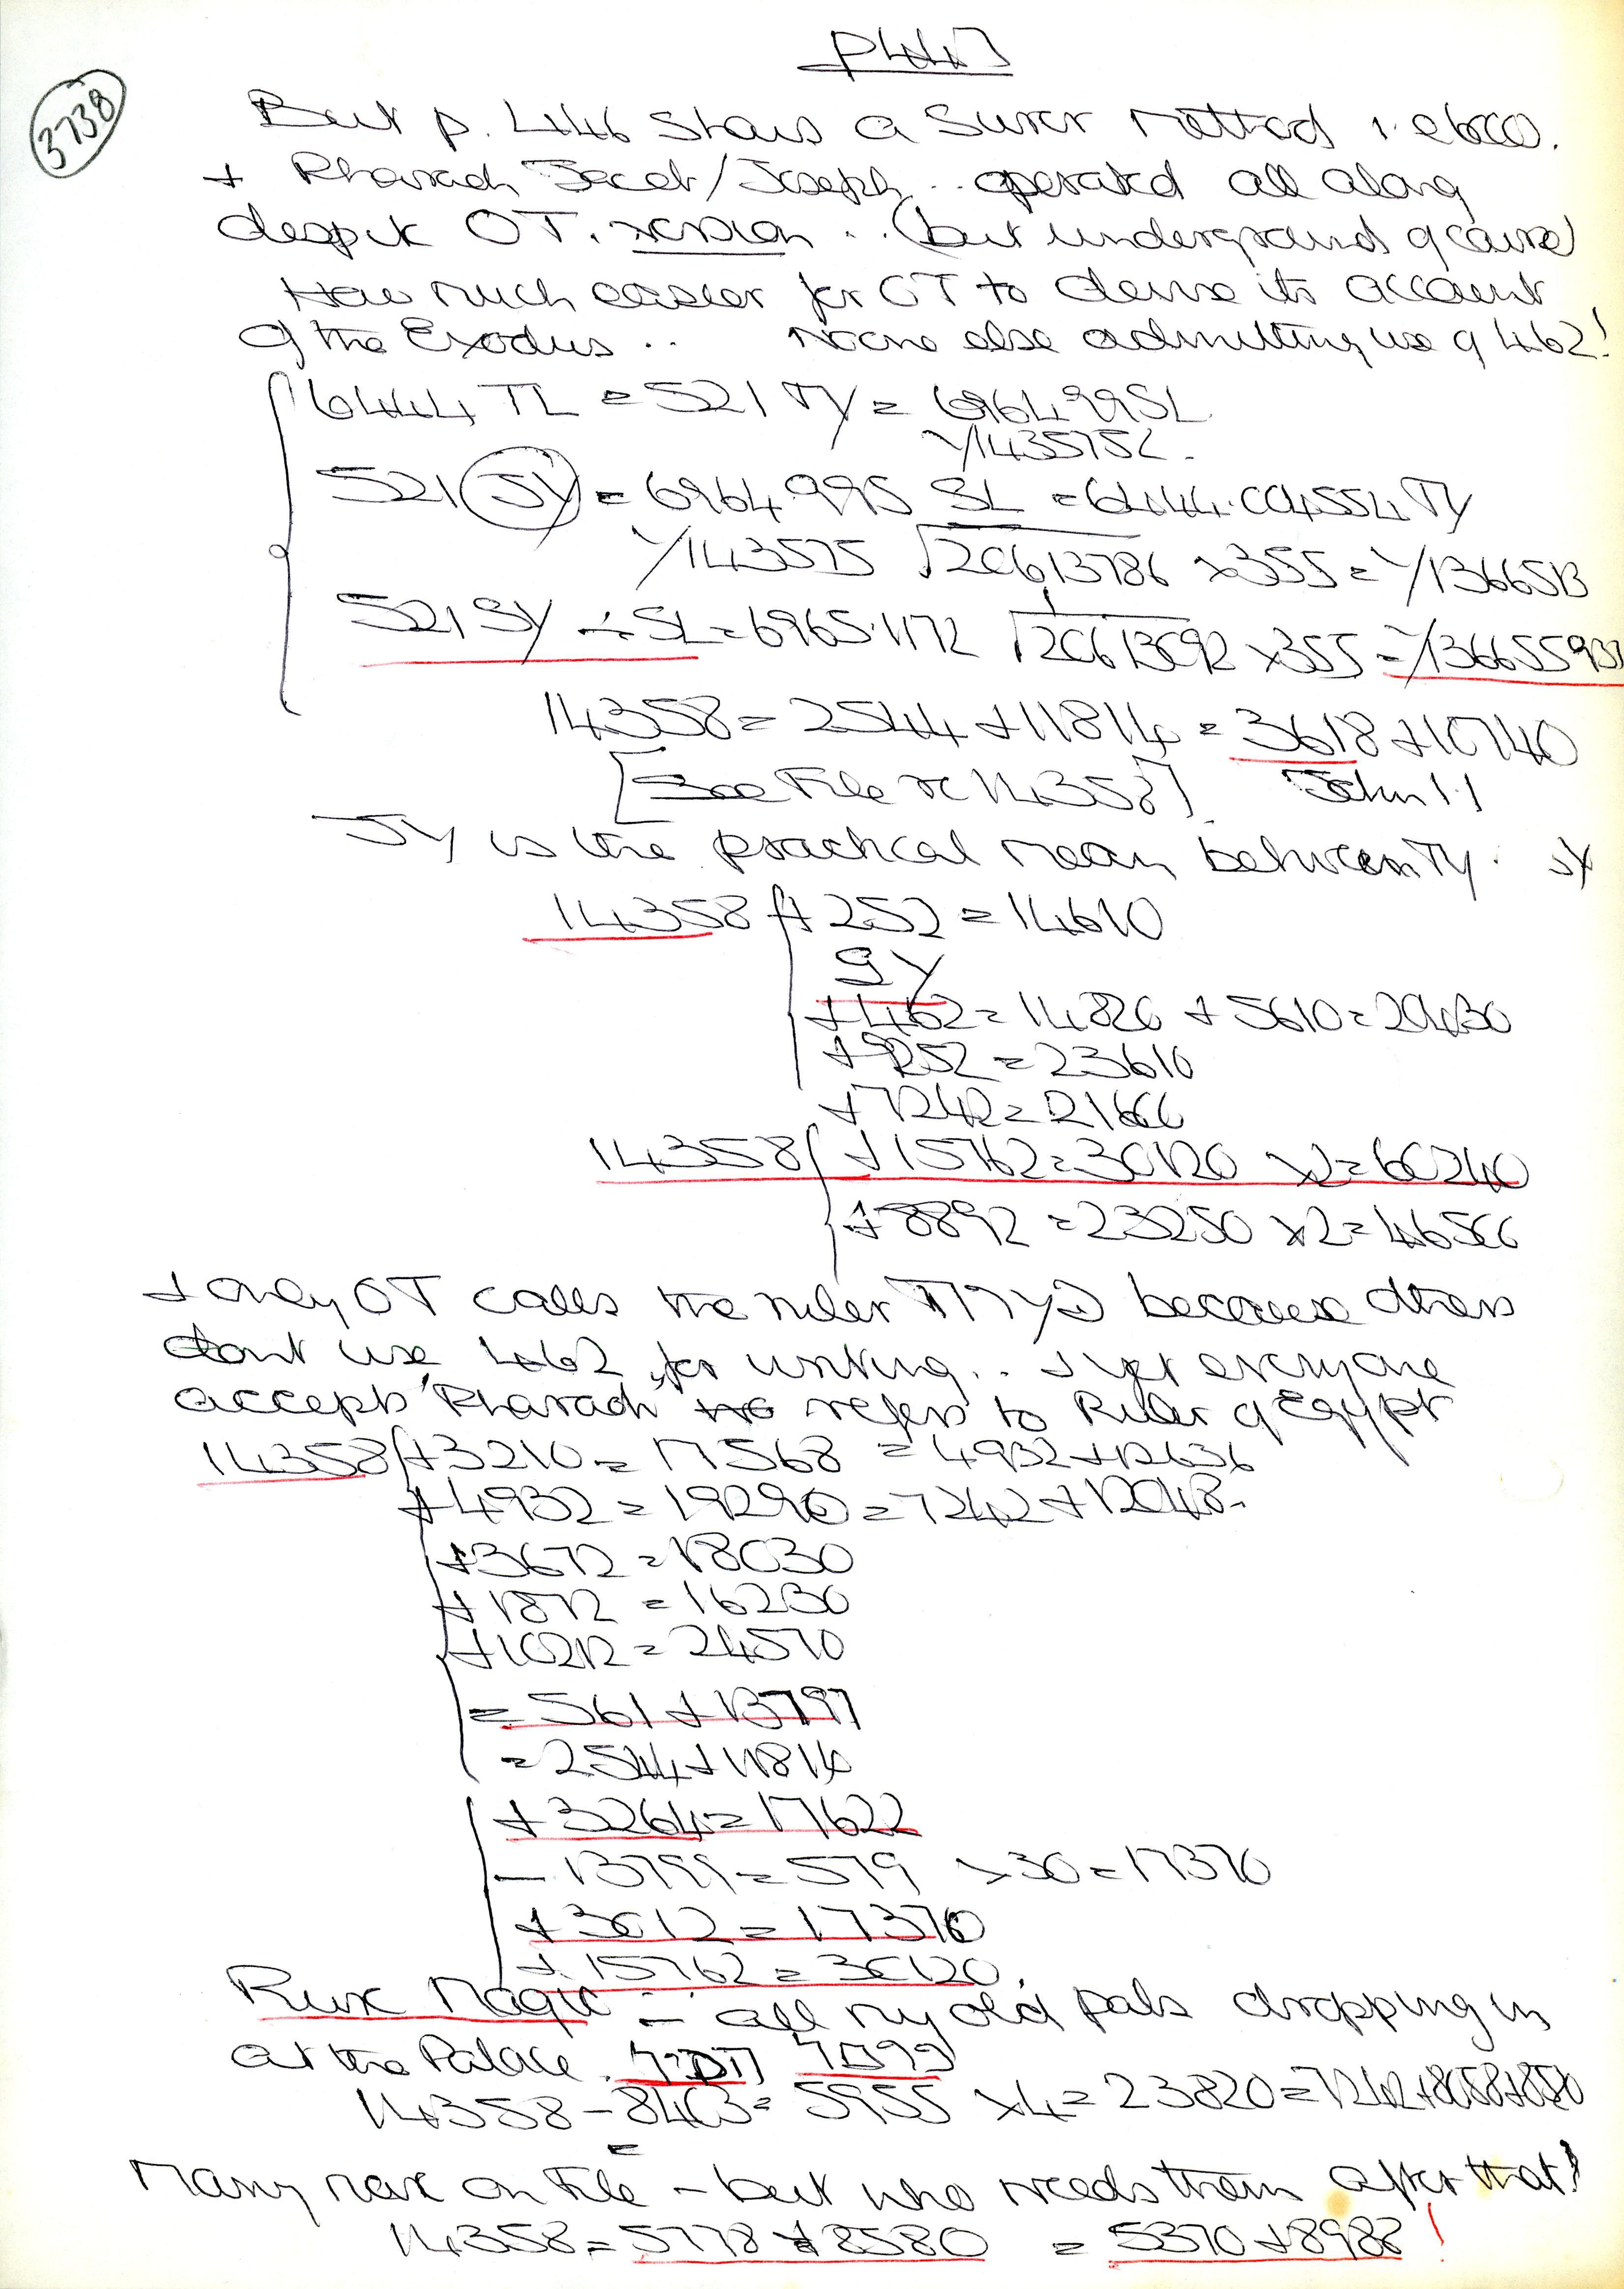 p447
3738
But p. 446 shows a surer method i.e.
+ Pharaoh Jacob/Joseph .. operated all along
despite OT. version .. (but underground of course)
How much easier for OT to devise its account
of the Exodus .. Noone else admitting use of 462!
6444 TL = 521 TY = 696499SL
Y/143575L.
521 (JY) = 6964.995 SL = 6444.004554 TY
Y/143575 √20613786 x355 = Y/1366513
521 SY ÷ SL = 6965.1172 √20613092 x355 = Y/13665593
14358 = 2544 + 11814 = 3618 + 10740
[See File re 14358] John 1.1
JY is the practical mean between TY. SY
14358 + 252 = 14610
SY
+ 462 = 14820 + 5610 = 20430
+ 9252 = 23610
+ 7242 = 21600
14358 + 15762 = 30120 x2 = 60240
+ 8892 = 23250 x2 = 46500
+ only OT calls the ruler because others
dont use 462 for writing .. + yet everyone
accepts 'Pharaoh' refers to Ruler of Egypt
14358 + 3210 = 17568 = 4932 + 12636
+ 4932 = 19290 = 7242 + 12048.
+ 3672 = 18030
+ 1872 = 16230
+ 10212 = 24570
= 561 + 13797
= 2544 + 11814
+ 3264 = 17622
- 13779 = 579 x30 = 17370
+ 3012 = 17370
+ 15762 = 30120.
Pure Magic - all my old pals dropping in
at the Palace.
14358 - 8403 = 5955 x4 = 23820 = 7242 + 8058 + 8520
Many more on File - but who needs them after that!
14358 = 5778 + 8580 = 5370 + 8988!